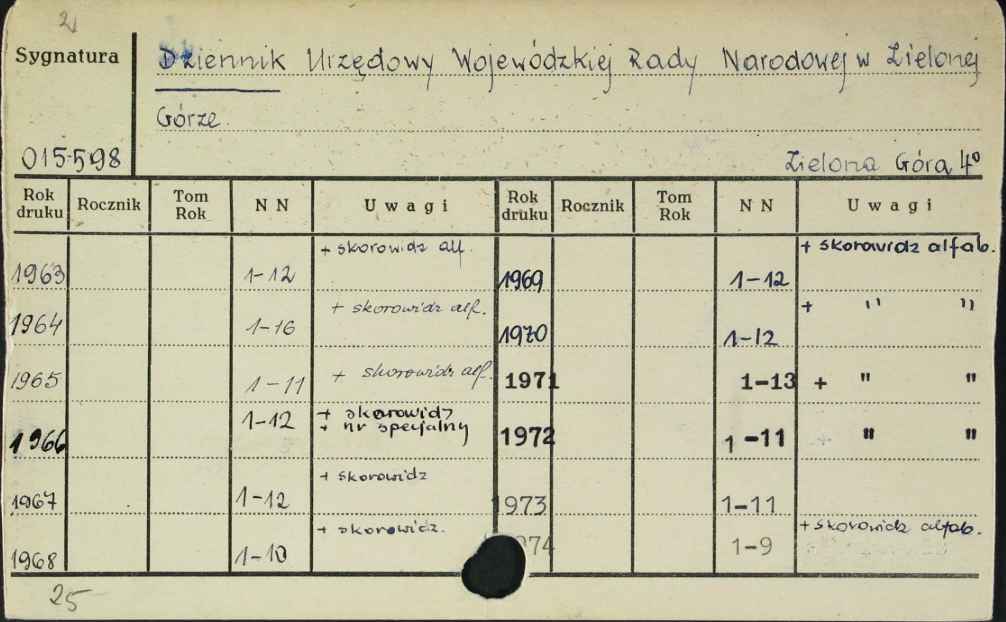 2
Sygnatura
Dziennik Urzędowy Wojewódzkiej Rady Narodowej w Zielonej
Górze.
015598
Zielona Góra 4°
Rok druku Rocznik Tom Rok NN Uwagi Rok druku Rocznik Tom Rok NN Uwagi
1963 1-12 + skorowidz alf. 1969 1-12 + skorowidz alfab.
1964 1-16 + skorowidz alf. 1970 1-12 + " "
1965 1-11 + skorowidz alf. 1971 1-13 + " "
1966 1-12 + skorowidz
+ nr specjalny 1972 1-11 + " "
1967 1-12 + skorowidz 1973 1-11
1968 1-10 + skorowidz. 74 1-9 + skorowidz alfab.
25